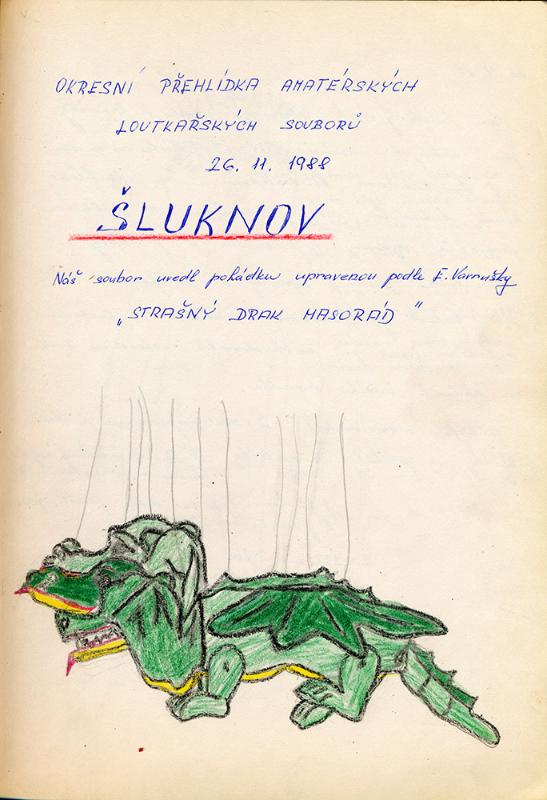 OKRESNÍ PŘEHLÍDKA AMATÉRSKÝCH
LOUTKAŘSKÝCH SOUBORŮ
26. 11. 1988
ŠLUKNOV
Náš soubor uvedl pohádku upravenou podle F. Vavrušky
„STRAŠNÝ DRAK MASORÁD"